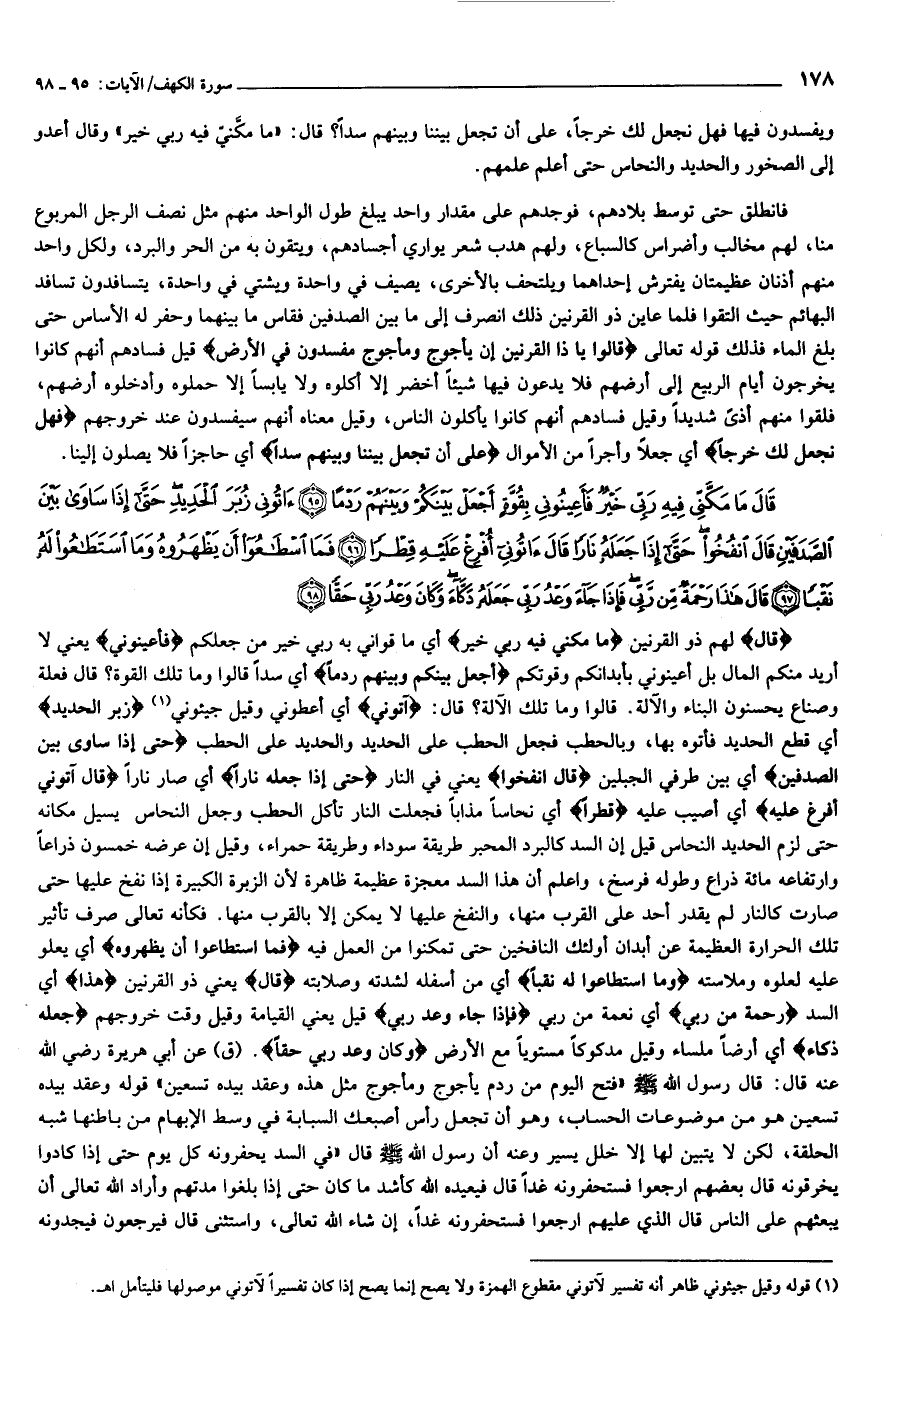 ١٧٨ سورة الكهف/ الآيات: ٩٥ ـ ٩٨
ويفسدون فيها فهل نجعل لك خرجاً، على أن تجعل بيننا وبينهم سداً؟ قال: «ما مكَّنيّ فيه ربي خير» وقال أعدو
إلى الصخور والحديد والنحاس حتى أعلم علمهم.
فانطلق حتى توسط بلادهم، فوجدهم على مقدار واحد يبلغ طول الواحد منهم مثل نصف الرجل المربوع
منا، لهم مخالب وأضراس كالسباع، ولهم هدب شعر يواري أجسادهم، ويتقون به من الحر والبرد، ولكل واحد
منهم أذنان عظيمتان يفترش إحداهما ويلتحف بالأخرى، يصيف في واحدة ويشتي في واحدة، يتسافدون تسافد
البهائم حيث التقوا فلما عاين ذو القرنين ذلك انصرف إلى ما بين الصدفين فقاس ما بينهما وحفر له الأساس حتى
بلغ الماء فذلك قوله تعالى ﴿قالوا يا ذا القرنين إن يأجوج ومأجوج مفسدون في الأرض﴾ قيل فسادهم أنهم كانوا
يخرجون أيام الربيع إلى أرضهم فلا يدعون فيها شيئاً أخضر إلا أكلوه ولا يابساً إلا حملوه وأدخلوه أرضهم،
فلقوا منهم أذىً شديداً وقيل فسادهم أنهم كانوا يأكلون الناس، وقيل معناه أنهم سيفسدون عند خروجهم ﴿فهل
نجعل لك خرجاً﴾ أي جعلاً وأجراً من الأموال ﴿على أن تجعل بيننا وبينهم سداً﴾ أي حاجزاً فلا يصلون إلينا.
قَالَ مَا مَكَّنِّي فِيهِ رَبِّي خَيْرٌ فَأَعِينُونِي بِقُوَّةٍ أَجْعَلْ بَيْنَكُمْ وَبَيْنَهُمْ رَدْمًا ﴿٩٥﴾ ءَاتُونِي زُبَرَ الْحَدِيدِ ۖ حَتَّىٰٓ إِذَا سَاوَىٰ بَيْنَ
الصَّدَفَيْنِ قَالَ انفُخُوا ۖ حَتَّىٰٓ إِذَا جَعَلَهُۥ نَارًا قَالَ ءَاتُونِيٓ أُفْرِغْ عَلَيْهِ قِطْرًا ﴿٩٦﴾ فَمَا اسْطَٰعُوٓا أَن يَظْهَرُوهُ وَمَا اسْتَطَٰعُوا لَهُۥ
نَقْبًا ﴿٩٧﴾ قَالَ هَٰذَا رَحْمَةٌ مِّن رَّبِّي ۖ فَإِذَا جَآءَ وَعْدُ رَبِّي جَعَلَهُۥ دَكَّآءَ ۖ وَكَانَ وَعْدُ رَبِّي حَقًّا ﴿٩٨﴾
﴿قال﴾ لهم ذو القرنين ﴿ما مكني فيه ربي خير﴾ أي ما قواني به ربي خير من جعلكم ﴿فأعينوني﴾ يعني لا
أريد منكم المال بل أعينوني بأبدانكم وقوتكم ﴿أجعل بينكم وبينهم ردماً﴾ أي سداً قالوا وما تلك القوة؟ قال فعلة
وصناع يحسنون البناء والآلة. قالوا وما تلك الآلة؟ قال: ﴿آتوني﴾ أي أعطوني وقيل جيئوني(١) ﴿زبر الحديد﴾
أي قطع الحديد فأتوه بها، وبالحطب فجعل الحطب على الحديد والحديد على الحطب ﴿حتى إذا ساوى بين
الصدفين﴾ أي بين طرفي الجبلين ﴿قال انفخوا﴾ يعني في النار ﴿حتى إذا جعله ناراً﴾ أي صار ناراً ﴿قال آتوني
أفرغ عليه﴾ أي أصيب عليه ﴿قطراً﴾ أي نحاساً مذاباً فجعلت النار تأكل الحطب وجعل النحاس يسيل مكانه
حتى لزم الحديد النحاس قيل إن السد كالبرد المحبر طريقة سوداء وطريقة حمراء، وقيل إن عرضه خمسون ذراعاً
وارتفاعه مائة ذراع وطوله فرسخ، واعلم أن هذا السد معجزة عظيمة ظاهرة لأن الزبرة الكبيرة إذا نفخ عليها حتى
صارت كالنار لم يقدر أحد على القرب منها، والنفخ عليها لا يمكن إلا بالقرب منها. فكأنه تعالى صرف تأثير
تلك الحرارة العظيمة عن أبدان أولئك النافخين حتى تمكنوا من العمل فيه ﴿فما استطاعوا أن يظهروه﴾ أي يعلو
عليه لعلوه وملاسته ﴿وما استطاعوا له نقباً﴾ أي من أسفله لشدته وصلابته ﴿قال﴾ يعني ذو القرنين ﴿هذا﴾ أي
السد ﴿رحمة من ربي﴾ أي نعمة من ربي ﴿فإذا جاء وعد ربي﴾ قيل يعني القيامة وقيل وقت خروجهم ﴿جعله
ذكاء﴾ أي أرضاً ملساء وقيل مدكوكاً مستوياً مع الأرض ﴿وكان وعد ربي حقاً﴾. (ق) عن أبي هريرة رضي الله
عنه قال: قال رسول الله ﷺ «فتح اليوم من ردم يأجوج ومأجوج مثل هذه وعقد بيده تسعين» قوله وعقد بيده
تسعين هو من موضوعات الحساب، وهو أن تجعل رأس أصبعك السبابة في وسط الإبهام من باطنها شبه
الحلقة، لكن لا يتبين لها إلا خلل يسير وعنه أن رسول الله ﷺ قال «في السد يحفرونه كل يوم حتى إذا كادوا
يخرقونه قال بعضهم ارجعوا فستحفرونه غداً قال فيعيده الله كأشد ما كان حتى إذا بلغوا مدتهم وأراد الله تعالى أن
يبعثهم على الناس قال الذي عليهم ارجعوا فستحفرونه غداً، إن شاء الله تعالى، واستثنى قال فيرجعون فيجدونه
(١) قوله وقيل جيئوني ظاهر أنه تفسير لآتوني مقطوع الهمزة ولا يصح إنما يصح إذا كان تفسيراً لآتوني موصولها فليتأمل اهـ.